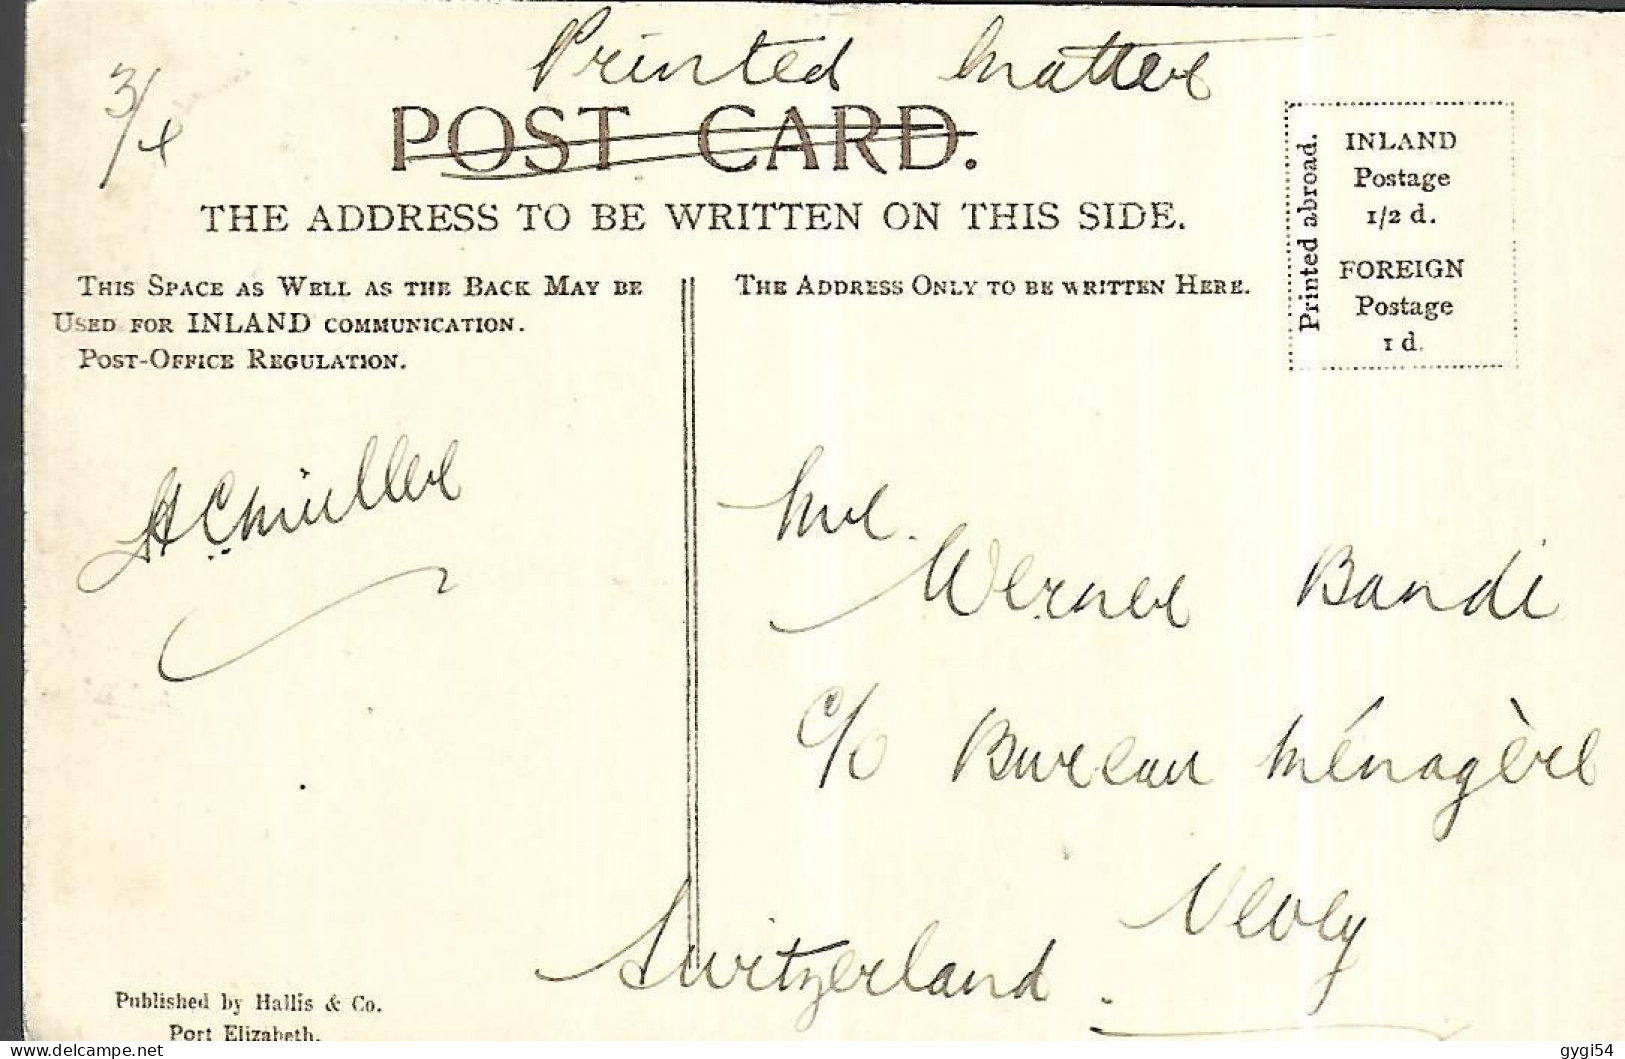 Printed Matter
3/4
POST CARD.
THE ADDRESS TO BE WRITTEN ON THIS SIDE.
Printed abroad.
INLAND
Postage
1/2 d.
FOREIGN
Postage
1 d.
THIS SPACE AS WELL AS THE BACK MAY BE
USED FOR INLAND COMMUNICATION.
POST-OFFICE REGULATION.
THE ADDRESS ONLY TO BE WRITTEN HERE.
HCMüller
Werner Bandi
c/o Bureau Ménagère
Vevey
Switzerland.
Published by Hallis & Co.
Port Elizabeth.
gygi54